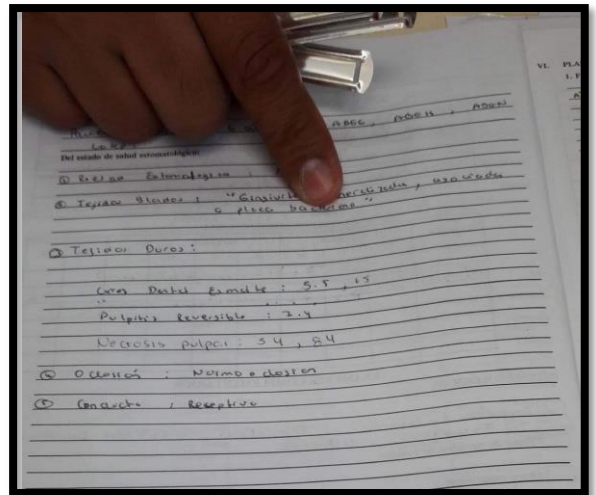 ABEG, ABEH, ASEN
Del estado de salud estomatológico:
① Riesgo Estomatológico :
② Tejidos Blandos : "Gingivitis generalizada, asociada
a placa bacteriana"
③ Tejidos Duros :
Caries Dental Esmalte : 5.5, 65
Pulpitis Reversible : 7.4
Necrosis pulpar : 54, 84
④ Oclusión : Normo oclusion
⑤ Conducta : Receptivo
VI. PLA
1. F